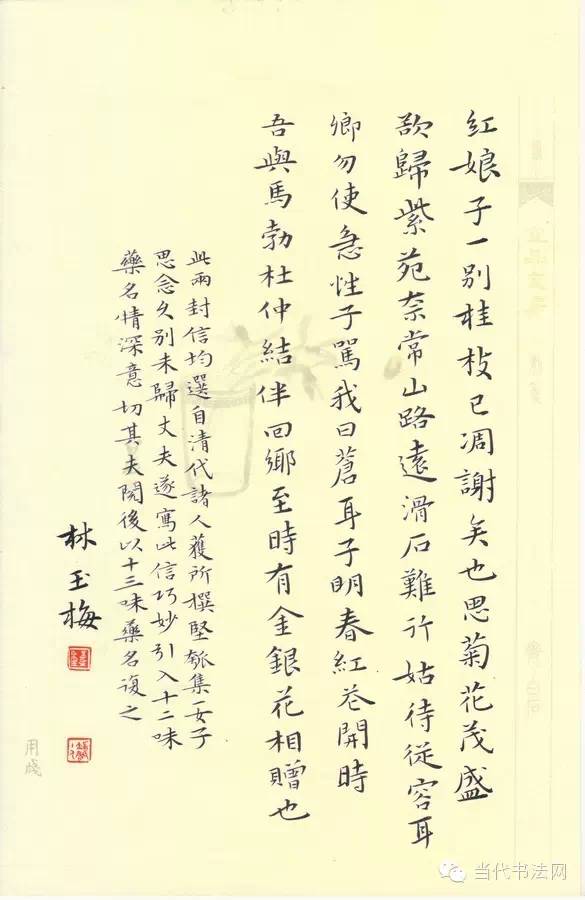 紅娘子一別桂枝已凋謝矣也思菊花茂盛
欲歸紫苑奈常山路遠滑石難行姑待從容耳
卿勿使急性子罵我曰蒼耳子明春紅花開時
吾與馬勃杜仲結伴回鄉至時有金銀花相贈也
此兩封信均選自清代諸人獲所撰堅瓠集一女子
思念久別未歸丈夫遂寫此信巧妙引入十二味
藥名情深意切其夫閱後以十三味藥名復之
林玉梅
用牋
当代书法网